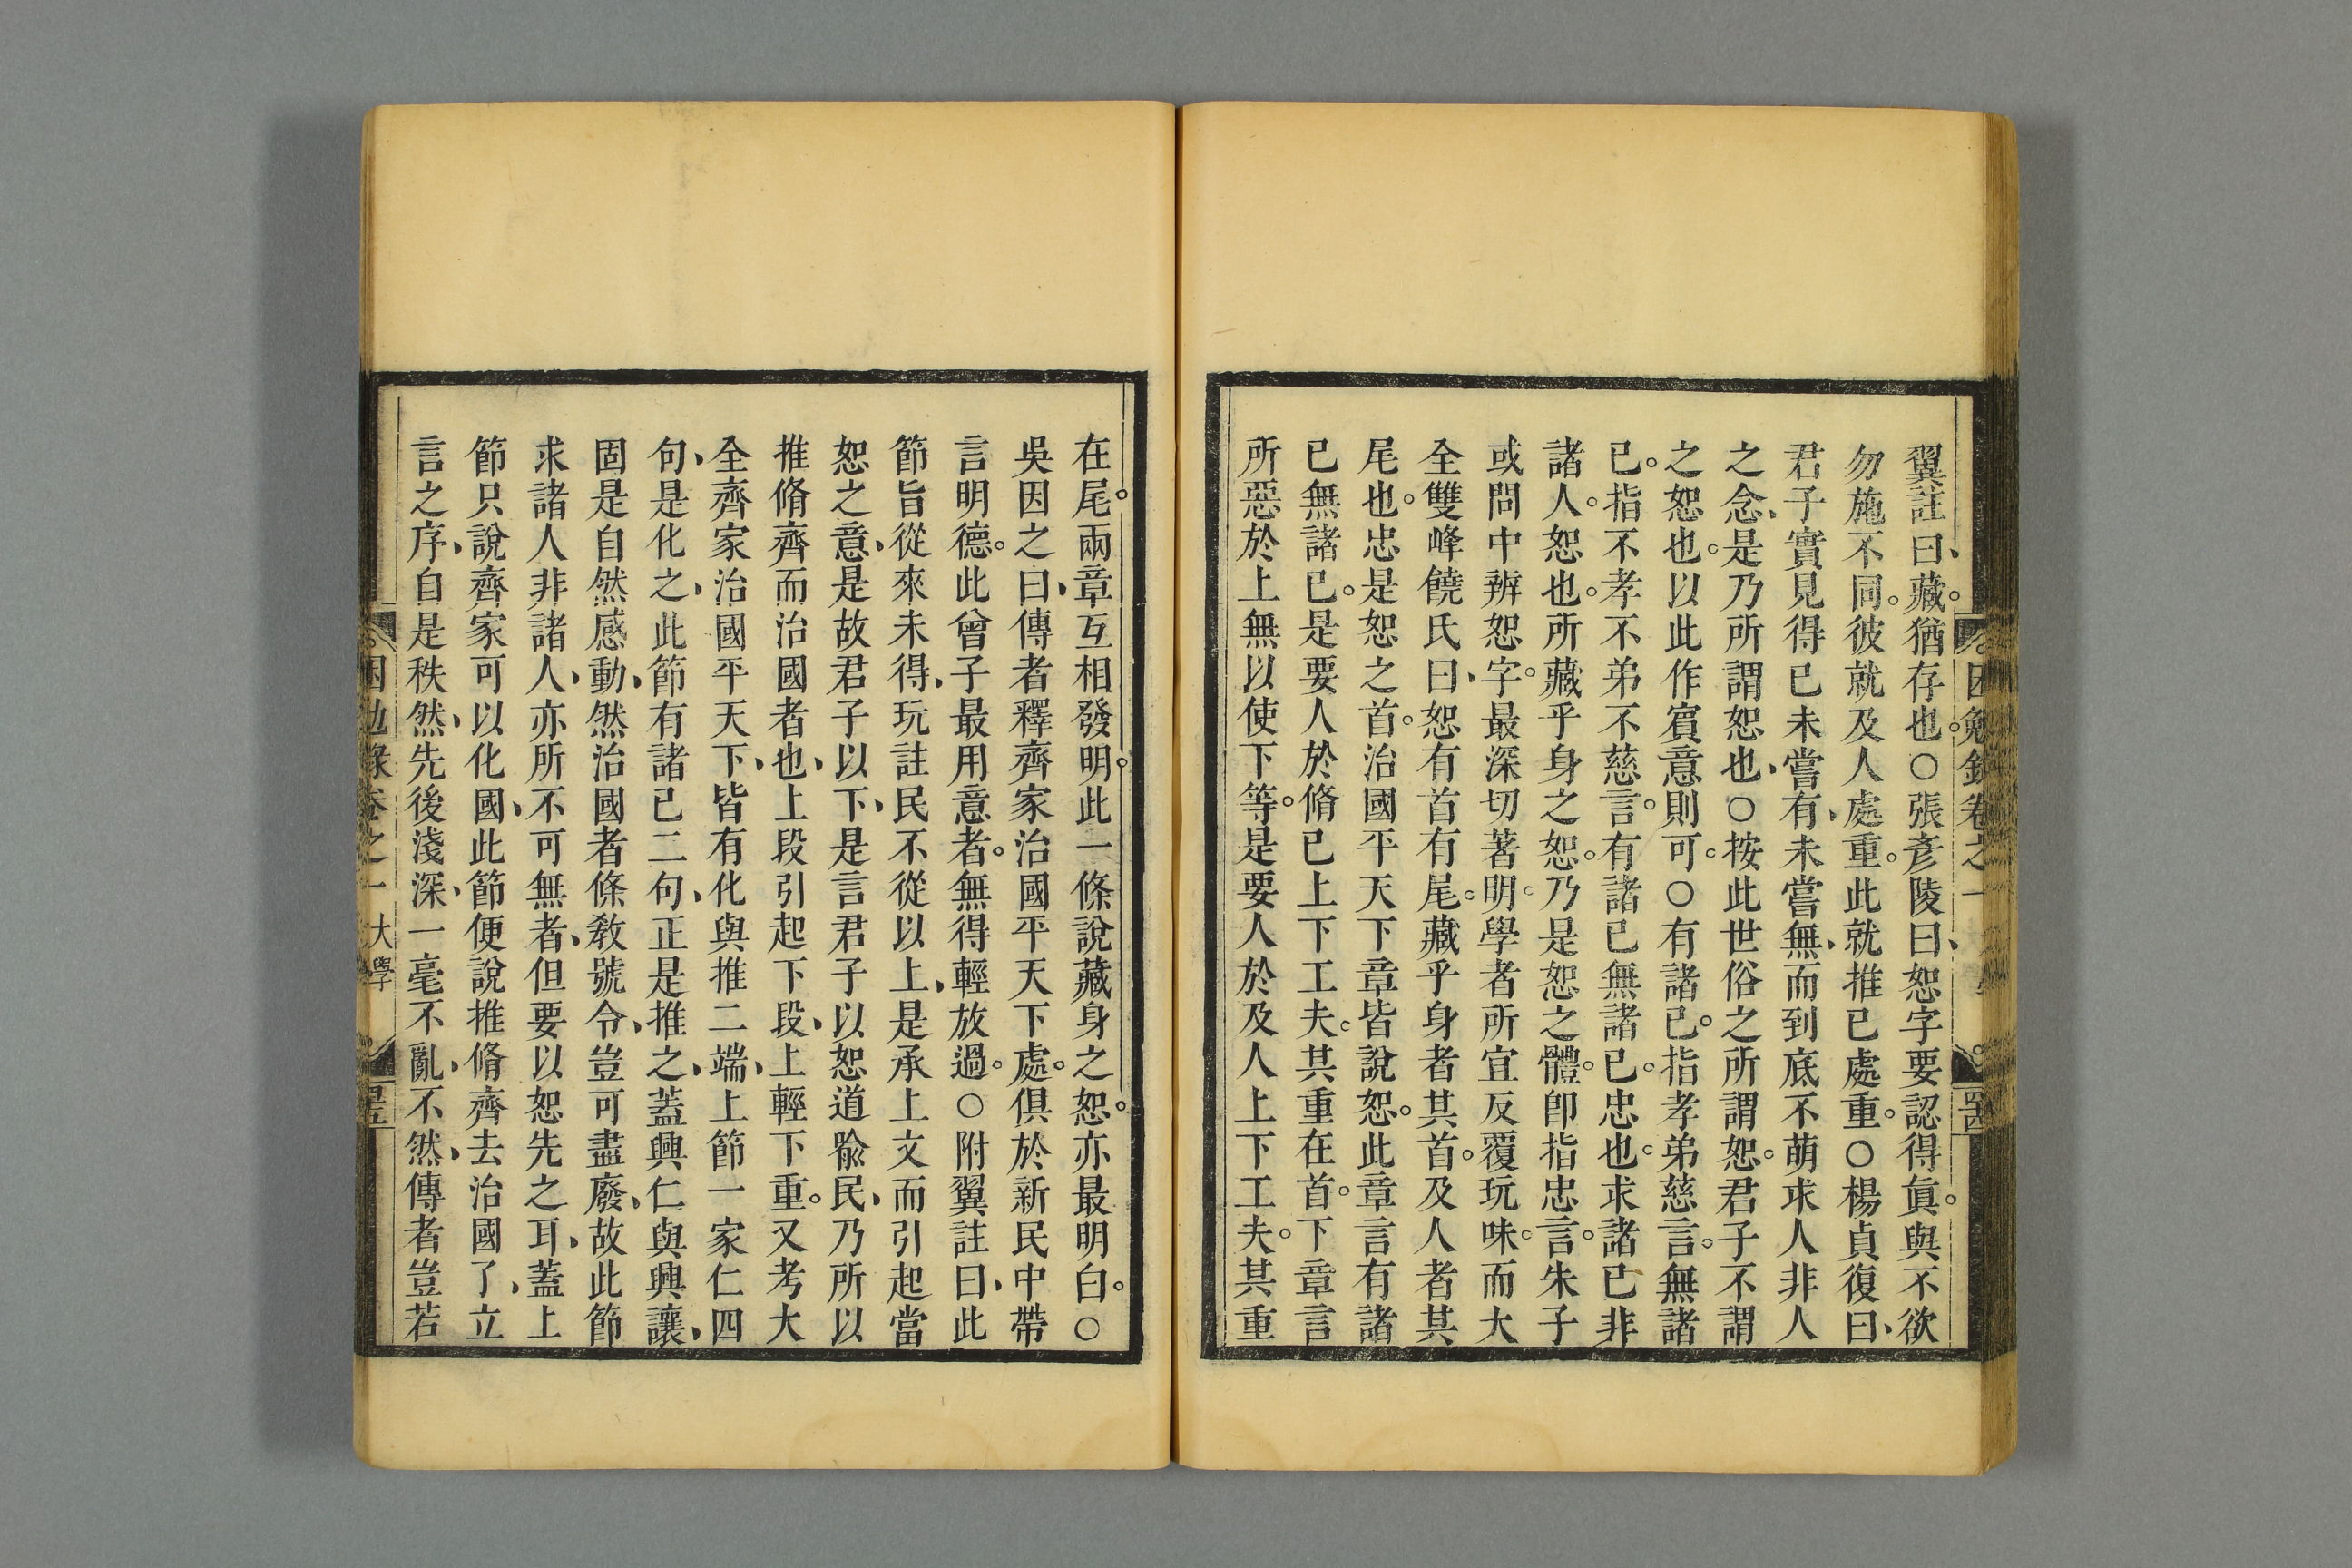 翼註曰、藏。猶存也。○張彥陵曰、恕字要認得眞。與不欲
勿施不同。彼就及人處重。此就推己處重。○楊貞復曰、
君子實見得已未嘗有、未嘗無、而到底不萌求人非人
之念、是乃所謂恕也、○按此世俗之所謂恕。君子不謂
之恕也。以此作賓意則可。○有諸己。指孝弟慈言。無諸
己。指不孝不弟不慈言。有諸己無諸己。忠也。求諸己非
諸人。恕也。所藏乎身之恕。乃是恕之體。卽指忠言。朱子
或問中辨恕字。最深切著明。學者所宜反覆玩味。而大
全雙峰饒氏曰、恕有首有尾。藏乎身者其首。及人者其
尾也。忠是恕之首。治國平天下章皆說恕。此章言有諸
已無諸已。是要人於脩已上下工夫。其重在首。下章言
所惡於上無以使下等。是要人於及人上下工夫。其重
困勉錄卷之一
在尾。兩章互相發明。此一條說藏身之恕。亦最明白。○
吳因之曰、傳者釋齊家治國平天下處。俱於新民中帶
言明德。此曾子最用意者。無得輕放過。○附翼註曰、此
節旨從來未得、玩註民不從以上、是承上文而引起當
恕之意、是故君子以下、是言君子以恕道喻民、乃所以
推脩齊而治國者也、上段引起下段、上輕下重。又考大
全齊家治國平天下、皆有化與推二端、上節一家仁四
句、是化之、此節有諸已二句、正是推之、蓋興仁與興讓、
固是自然感動、然治國者條敎號令、豈可盡廢、故此節
求諸人非諸人、亦所不可無者、但要以恕先之耳、蓋上
節只說齊家可以化國、此節便說推脩齊去治國了、立
言之序、自是秩然、先後淺深、一毫不亂、不然、傳者豈若
困勉錄卷之一 大學 罣